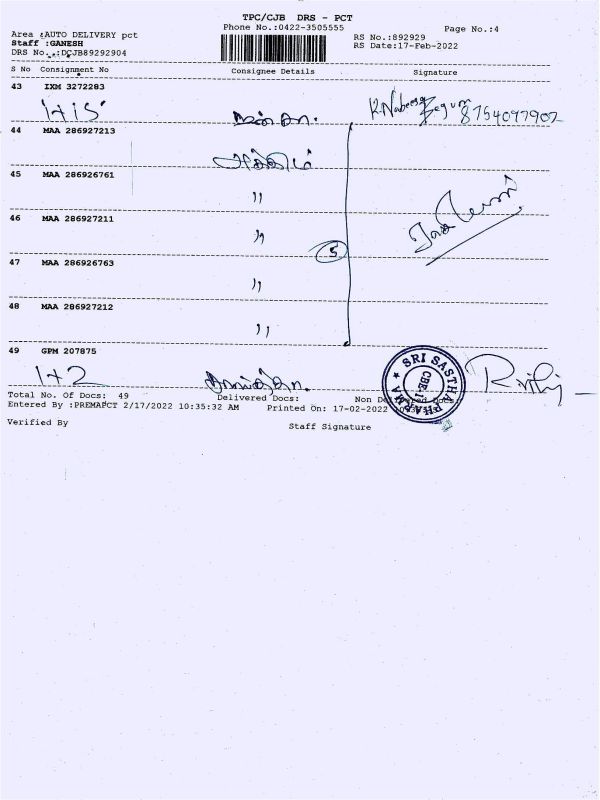 TPC/CJB DRS - PCT
Phone No.:0422-3505555
Page No.:4
Area :AUTO DELIVERY pct
Staff :GANESH
DRS No.:DCJB89292904
RS No.:892929
RS Date:17-Feb-2022
S No Consignment No Consignee Details Signature
43 IXM 3272283
K. Nabeesa Begum 8754097902
44 MAA 286927213
45 MAA 286926761
"
46 MAA 286927211
"
5
47 MAA 286926763
"
48 MAA 286927212
"
49 GPM 207875
1+2
SRI SASTHA PHARMA
Total No. Of Docs: 49 Delivered Docs: Non Delivered Docs:
Entered By :PREMAPCT 2/17/2022 10:35:32 AM Printed On: 17-02-2022
Verified By Staff Signature